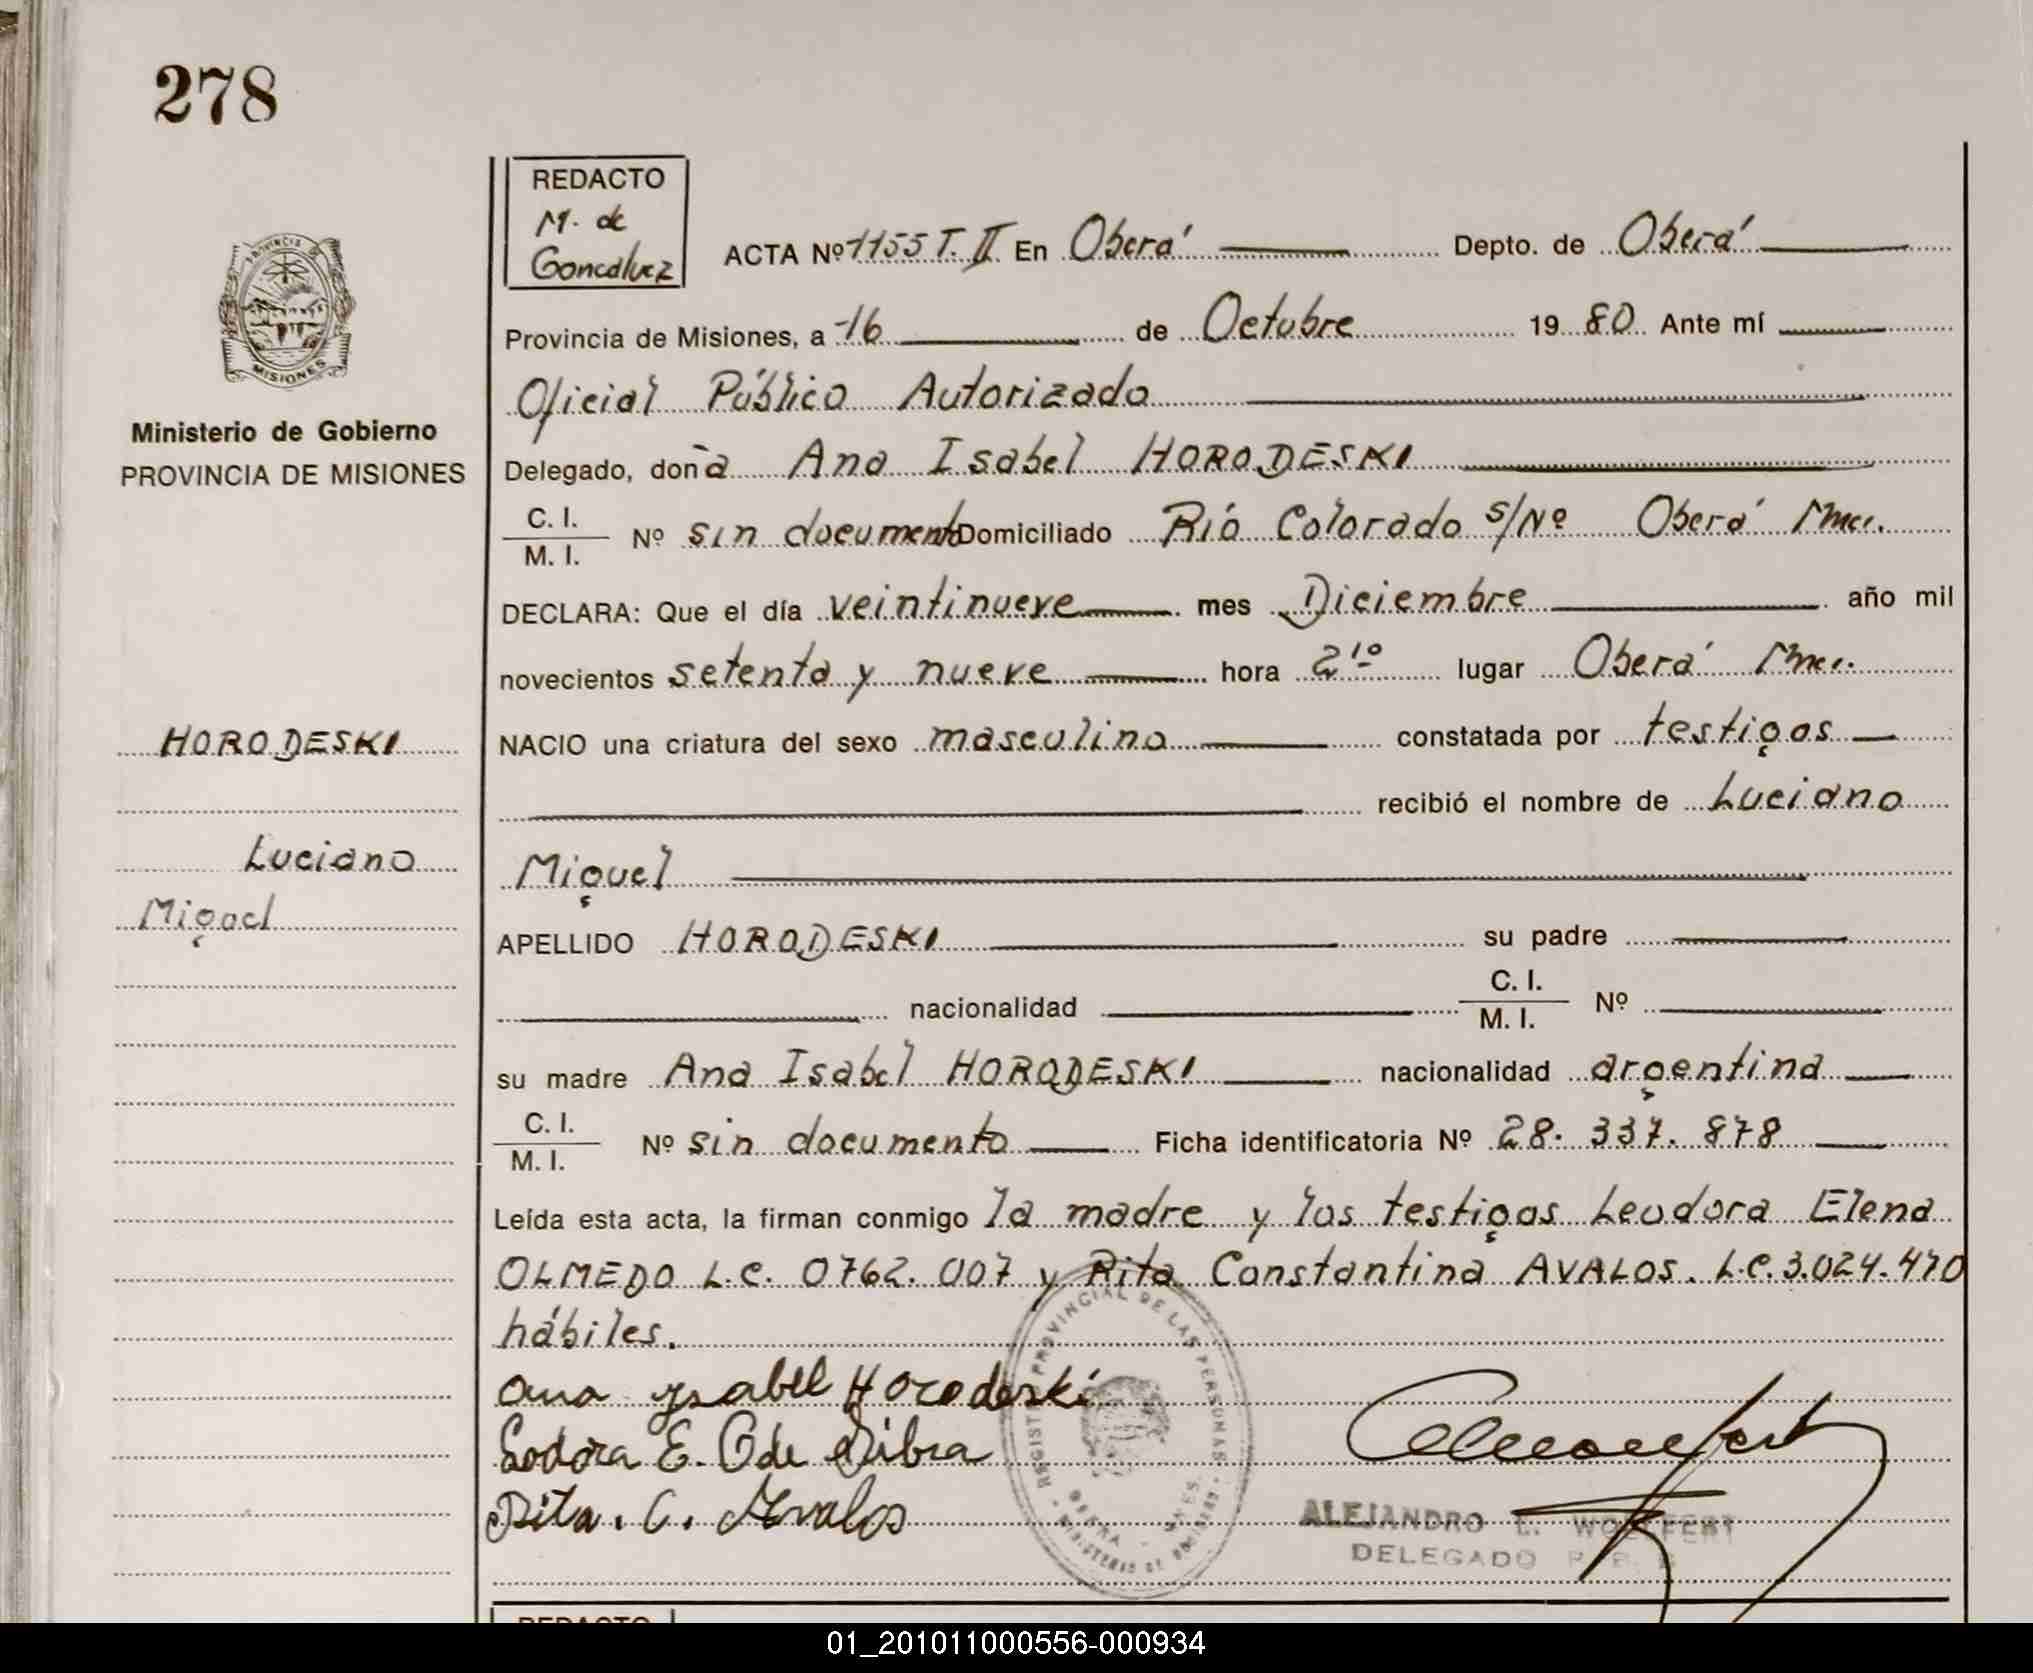 278
REDACTO
M. de
Goncalvez
ACTA Nº 1155 T. II En Oberá Depto. de Oberá
Provincia de Misiones, a 16 de Octubre 19 80 Ante mí
Oficial Público Autorizado
PROVINCIA DE
MISIONES
Ministerio de Gobierno
PROVINCIA DE MISIONES
Delegado, don a Ana Isabel HORODESKI
C. I.
M. I. Nº sin documento Domiciliado Río Colorado s/Nº Oberá Mnes.
DECLARA: Que el día veintinueve mes Diciembre año mil
novecientos setenta y nueve hora 2¹⁰ lugar Oberá Mnes.
HORODESKI
NACIO una criatura del sexo masculino constatada por testigos
recibió el nombre de Luciano
Luciano
Miguel
Miguel
APELLIDO HORODESKI su padre
nacionalidad C. I.
M. I. Nº
su madre Ana Isabel HORODESKI nacionalidad argentina
C. I.
M. I. Nº sin documento Ficha identificatoria Nº 28. 337. 878
Leída esta acta, la firman conmigo la madre y los testigos Leodora Elena
OLMEDO L.C. 0762. 007 y Rita Constantina AVALOS. L.C. 3.024.470
hábiles.
Ana Ysabel Horodeski
Lodora E. O de
Rita. C. Avalos
REGISTRO PROVINCIAL DE LAS PERSONAS
MINISTERIO DE GOBIERNO
ALEJANDRO L. WOLFFERT
DELEGADO
REDACTO
01_201011000556-000934